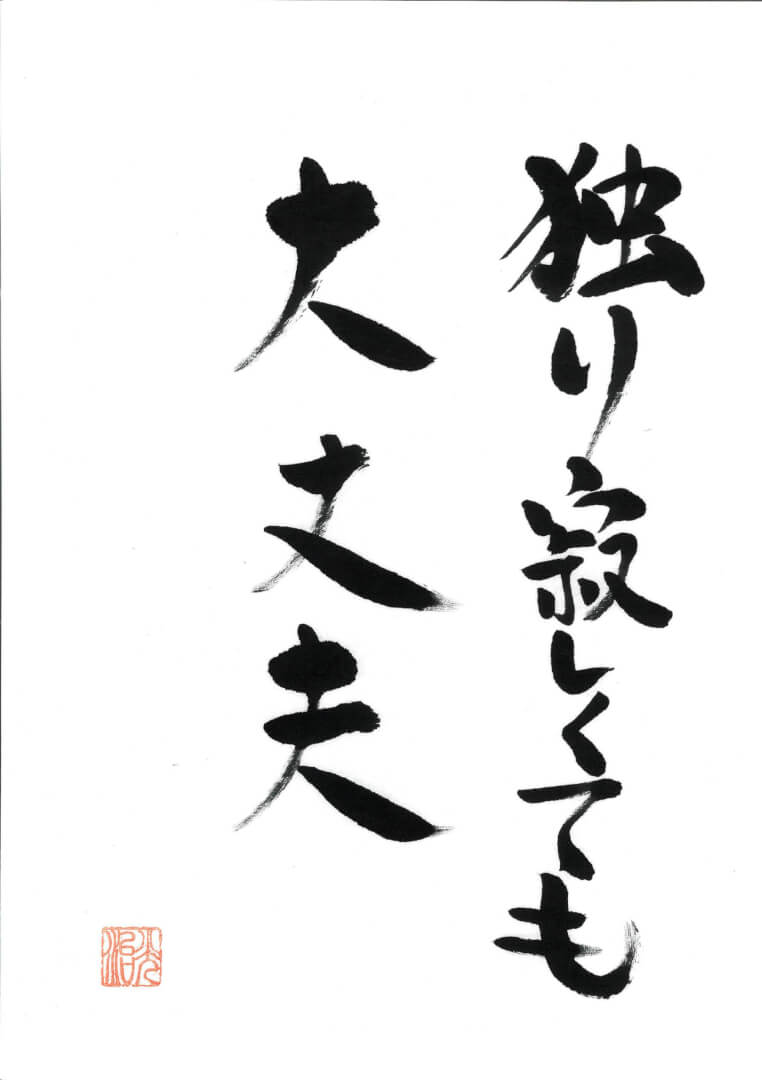 独り寂しくても
大丈夫